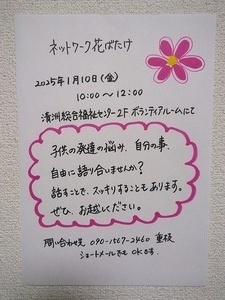 ネットワーク花ばたけ
2025年1月10日(金)
10:00～12:00
清洲総合福祉センター2F ボランティアルームにて
子供の発達の悩み、自分の事、
自由に語り合いませんか？
話すことで、スッキリすることもあります。
ぜひ、お越しください。
問い合わせ先 090-1567-2460 重役
ショートメールでも OKです。